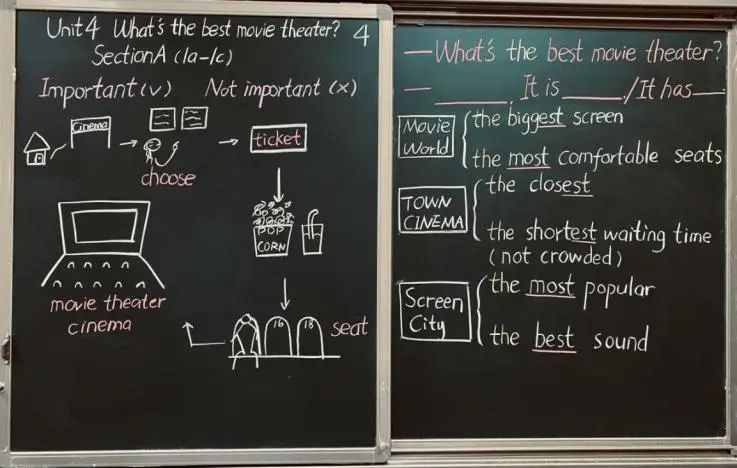 Unit4 What's the best movie theater? 4
SectionA (1a-1c)
Important (√) Not important (×)
Cinema
ticket
choose
POP
CORN
movie theater
cinema
16 18
seat
—What's the best movie theater?
— ______. It is ______./It has___
Movie
World
the biggest screen
the most comfortable seats
TOWN
CINEMA
the closest
the shortest waiting time
(not crowded)
Screen
City
the most popular
the best sound